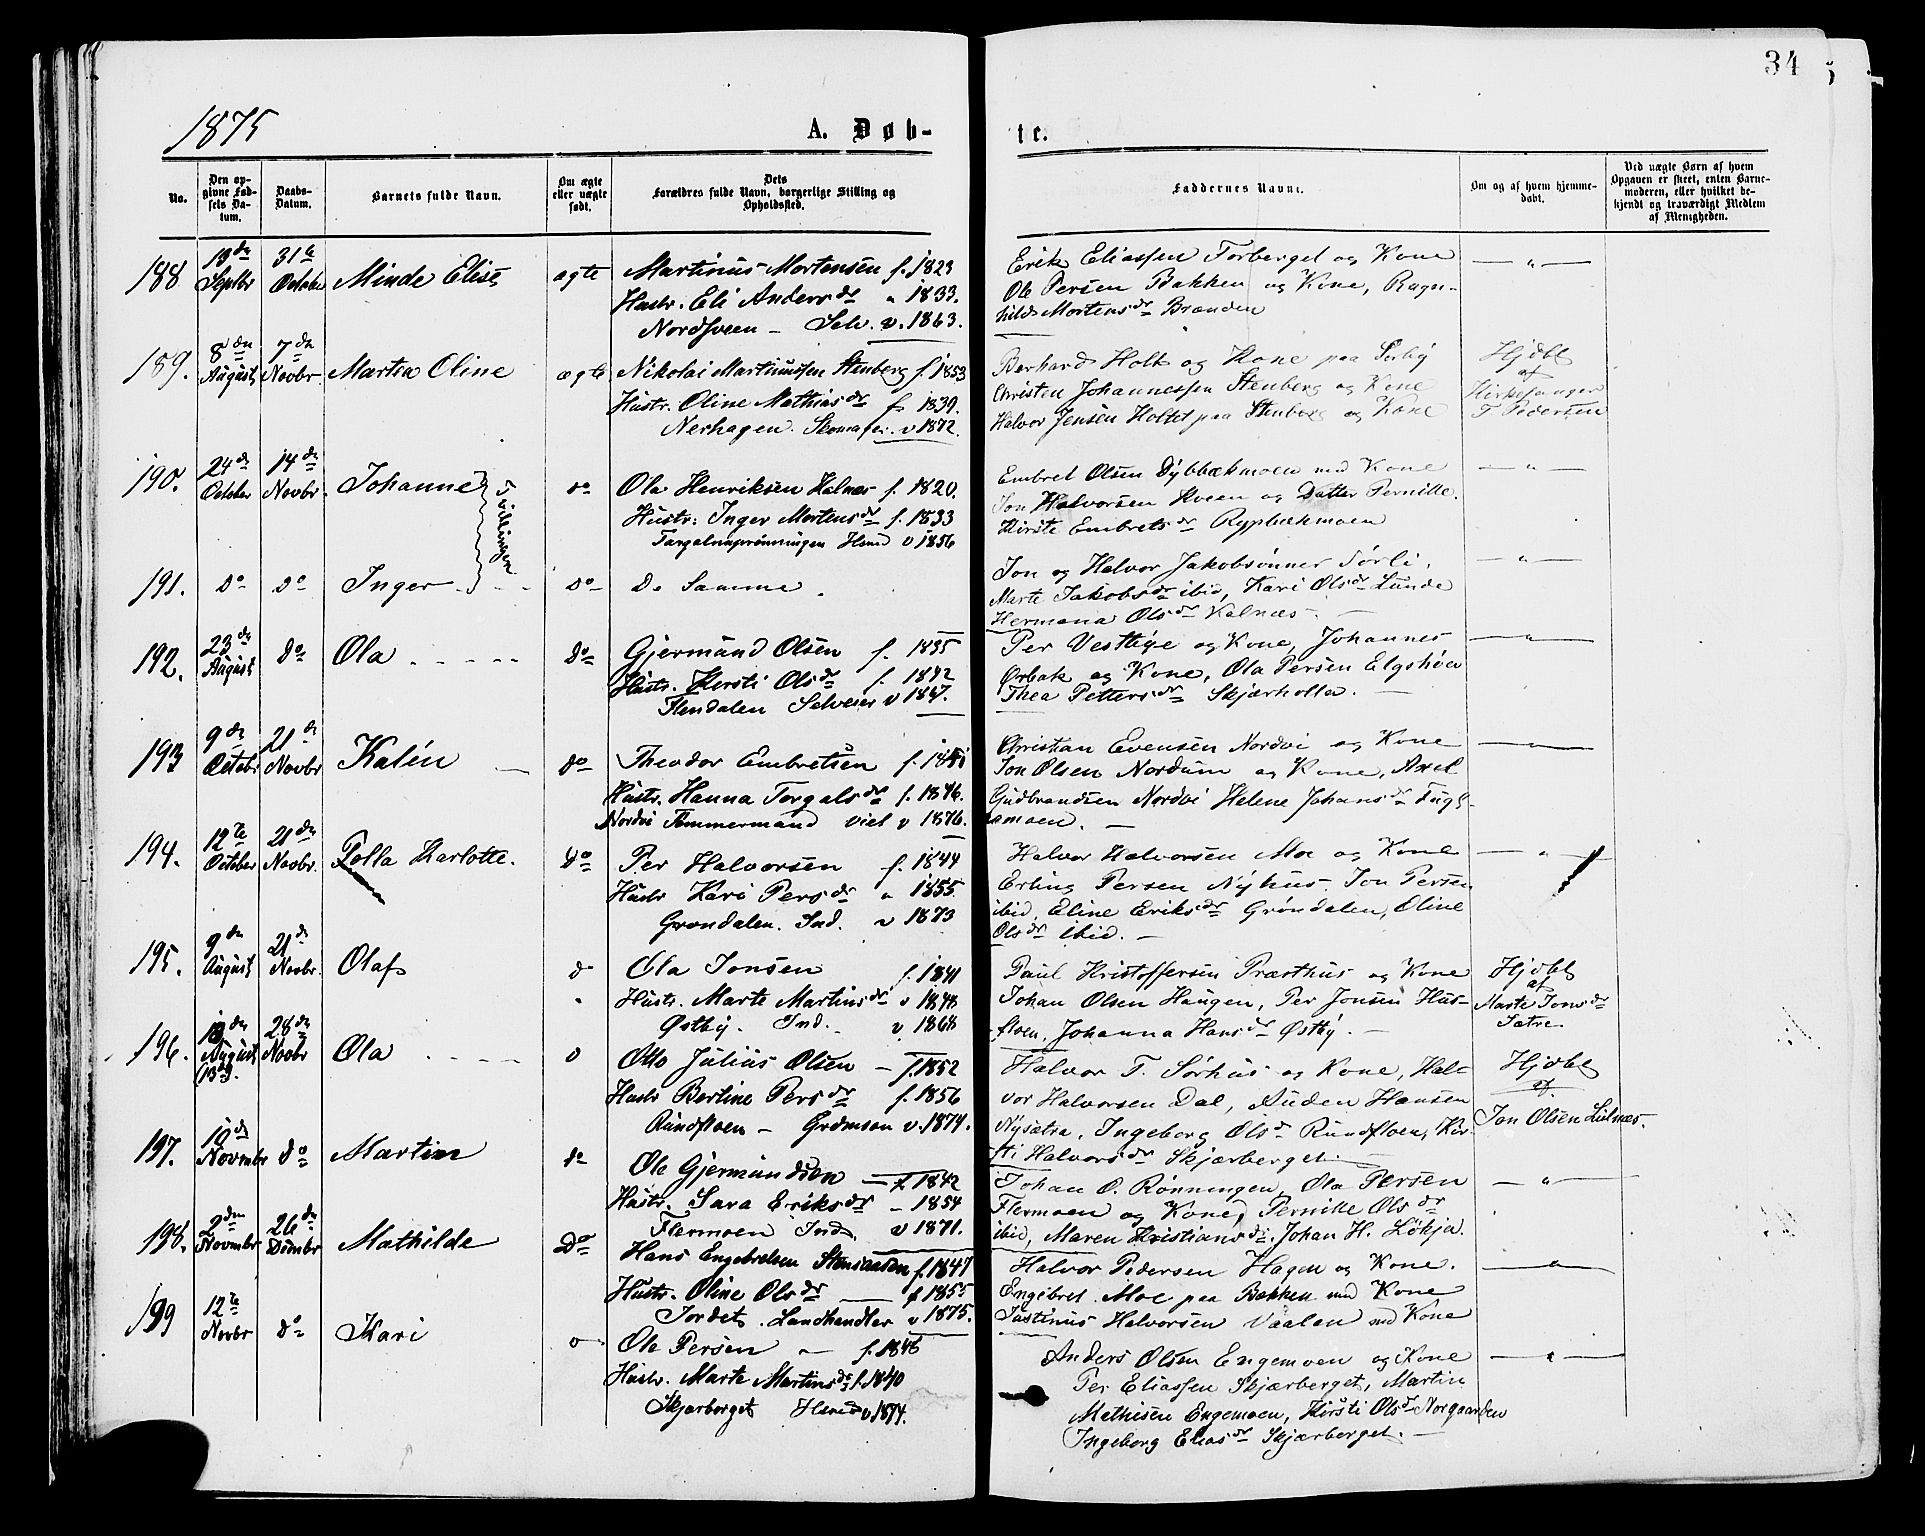 34
1875
A. Døb-
te.
No.
Den op-
givne Fød-
sels Da-
tum.
Daabs-
Datum.
Barnets fulde Navn.
Om ægte
eller uægte
født.
Dets
Forældres fulde Navn, borgerlige Stilling og
Opholdssted.
Faddernes Navne.
Om og af hvem hjemme-
døbt.
Ved uægte Børn af hvem
Opgaven er skeet, enten Barne-
moderen, eller hvilket be-
kjendt og troværdigt Medlem
af Menigheden.
188 Septbr 31te October Minde Elise ægte
Martinus Mortensen f. 1823
Hustr. Eli Andersdr " 1833.
Nordsveen - Selv. v. 1863.
Erik Eliassen Forberget og Kone
Ole Persen Bakken og Kone, Ragn-
hild Mortensdr Brænden
189. 8dn August 7dn Novbr. Martea Oline ægte
Nikolai Martinussen Stenberg f. 1853
Hustr. Oline Mathiasdr f. 1839.
Nerhagen. Skomager. v 1872.
Berhard Holt og Kone paa Sorby
Christen Johannessen Stenberg og Kone
Halvor Jensen Holtet paa Stenberg og Kone
Hjdbt
af
Kirkesanger
T. Pedersen
190. 24dn October 14dn Novbr. Johanne Tvillinger do
Ola Henriksen Halnæs f. 1820.
Hustr. Inger Mortensdr f. 1833
Huusd v 1856
Embret Olsen Dybbækmoen med Kone
Jon Halvorsen Hveen og Datter Pernille.
Kirste Embretsdr Rypbækmoen
191. do do Inger do De Samme.
Jon og Halvor Jakobsønner Sørli,
Marte Jakobsdr ibid, Kari Olsdr Lunde
Hermana Olsdr Kalnæs.
192. 23dn August do Ola do
Gjermund Olsen f. 1835
Hustr. Kersti Olsdr f. 1842
Flendalen Selveier v 1867.
Per Vestlige og Kone, Johannes
Ørbak og Kone, Ola Persen Elgshøa
Thea Pettersdr Skjærholla.
193 9dn Octobr 21dn Novbr Kalén do
Theodor Embretsen f.
Hustr. Hanna Torgalsdr f. 1846.
Nordvi Tømmermand viet v 1876.
Christian Evensen Nordvi og Kone
Jon Olsen Nordum og Kone, Axel
Gudbrandsen Nordvi Helene Johansdr Fugl-
æmoen.
194. 12te October 21dn Novbr. Pella Karlotte. do
Per Halvorsen f. 1844
Hustr Kari Persdr " 1855.
Grøndalen. Ind. v 1873
Halvor Halvorsen Moe og Kone
Erling Persen Nyhus. Jon Persen
ibid, Eline Eriksdr Grøndalen, Oline
Olsdr ibid.
195. 9dn August 21dn Novbr. Olaf do
Ola Jonsen f. 1841
Hustr. Marte Martinsdr v 1848
Østby. Ind. v 1868
Paul Kristoffersen Præsthus og Kone
Johan Olsen Haugen, Per Jonsen Hus-
floen, Johanna Hansdr Østby.
Hjdbt
af
Marte Jonsdr
Sætre
196. August 28dn Novbr Ola do
Otto Julius Olsen f. 1852
Hustr Bertine Persdr f. 1856
Rundfloen - v. 1874.
Halvor T. Sørhus og Kone, Hal-
vor Halvorsen Dal, Auden Hansen
Nysætra, Ingeborg Olsd Rundfloen, Kir-
sti Halvorsdr Skjærberget.
Hjdbt
af
Jon Olsen Lulnæs.
197. Novmbr do Martin do
Ole Gjermundsen f. 1842
Hustr. Sara Eriksdr - 1854
Flermoen Ind. v 1871.
Johan O. Rønningen, Ola Persen
Flermoen og Kone, Pernille Olsdr
ibid, Maren Kristiansdr. Johan H. Løkja.
198. 2den Novmbr 26dn Dcmbr Mathilde do
Hans Engebretsen f. 1847
Hustr. Oline Olsdr f 1855
Jordet. Landhandler v 1875.
Halvor Pedersen Hagen og Kone.
Engebret Moe paa Bakken med Kone
Justinus Halvorsen Vaalen md Kone
199 12te Novbr do Kari do
Ole Persen f. 1846
Hustr. Marte Martinsdr f. 1840
Skjærberget Huusd v 1874.
Anders Olsen Engemoen og Kone
Per Eliassen Skjærberget, Martin
Mathisen Engemoen, Kirsti Olsdr Norgaarden
Ingeborg Eliasdr Skjærberget.